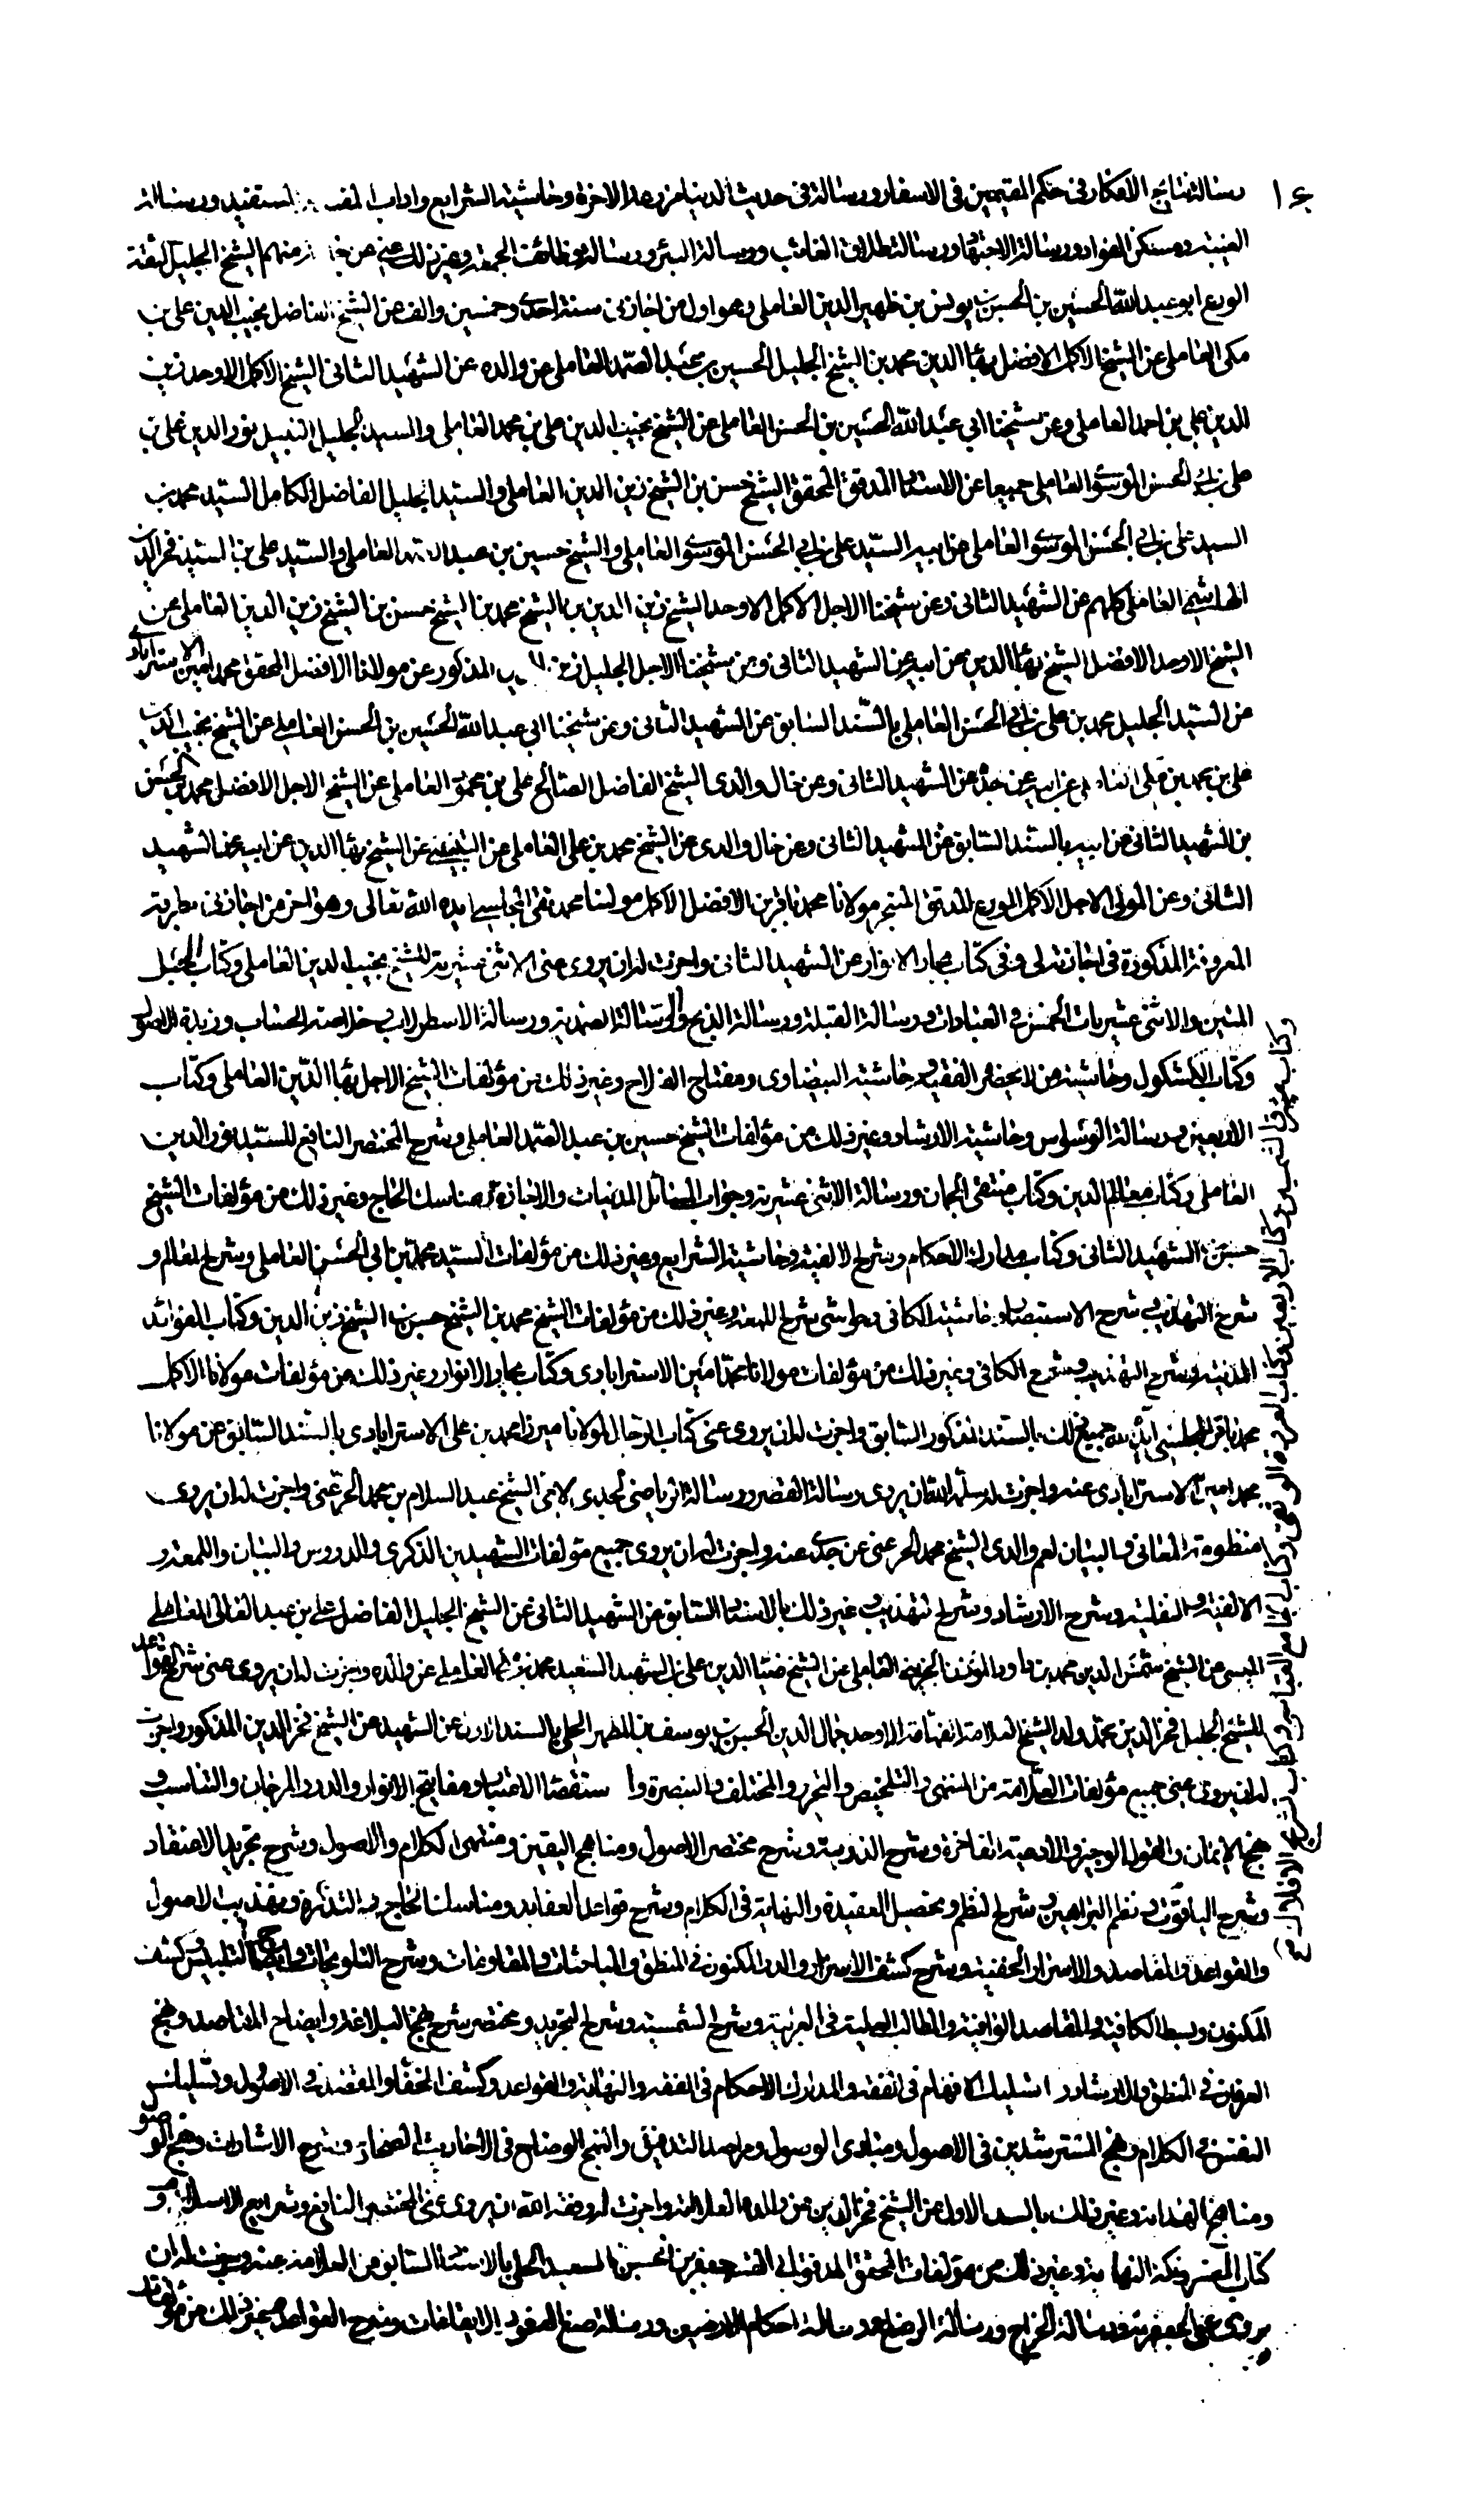 رسالة نتائج الافكار فى حكم المقيمين فى الاسفار ورسالة فى حديث الدنيا مزرعة الاخرة وحاشية الشرايع واداب المفيد والمستفيد ورسالة
الغيبة ومسكن الفؤاد ورسالة الاجتهاد ورسالة طلاق الغائب ورسالة البئر ورسالة وظائف الجمعة وغير ذلك عنى عن منهم الشيخ الجليل الثقة
الورع ابو عبد الله الحسين بن الحسن بن يونس بن ظهير الدين العاملى وهو اول من اجازنى سنة احدى وخمسين والف عن الشيخ الفاضل نجيب الدين على بن
مكى العاملى عن الشيخ الاكمل الافضل بهاء الدين محمد بن الشيخ الجليل الحسين بن عبد الصمد العاملى عن والده عن الشهيد الثانى الشيخ الاكمل الاوحد زين
الدين على بن احمد العاملى وعن شيخنا ابى عبد الله الحسين بن الحسن العاملى عن الشيخ نجيب الدين على بن محمد العاملى والسيد الجليل النبيل نور الدين على بن
على بن ابى الحسن الموسوى العاملى جميعا عن الاستاد المدقق المحقق الشيخ حسن بن الشيخ زين الدين العاملى والسيد الجليل الفاضل الكامل السيد محمد بن
السيد على بن ابى الحسن الموسوى العاملى عن ابيه السيد على بن ابى الحسن الموسوى العاملى والشيخ حسين بن عبد الصمد العاملى والسيد على بن السيد فخر الدين
الهاشمى العاملى كلهم عن الشهيد الثانى وعن شيخنا الاجل الاكمل الاوحد الشيخ زين الدين بن الشيخ محمد بن الشيخ حسن بن الشيخ زين الدين العاملى عن
الشيخ الاوحد الافضل الشيخ بهاء الدين عن ابيه عن الشهيد الثانى وعن شيخنا الاجل الجليل زين الدين المذكور عن مولانا الافضل المحقق محمد امين الاسترابادى
عن السيد الجليل محمد بن على بن ابى الحسن العاملى بالسند السابق عن الشهيد الثانى وعن شيخنا ابى عبد الله الحسين بن الحسن العاملى عن الشيخ نجيب الدين
على بن محمد بن مكى العاملى عن ابيه عن جده عن الشهيد الثانى وعن خال والدى الشيخ الفاضل الصالح على بن محمود العاملى عن الشيخ الاجل الافضل محمد بن الحسن
بن الشهيد الثانى عن ابيه بالسند السابق عن الشهيد الثانى وعن خال والدى عن الشيخ محمد بن على العاملى عن الشيخ بهاء الدين عن ابيه عن الشهيد
الثانى وعن المولى الاجل الاكمل الورع المدقق المتبحر مولانا محمد باقر بن الافضل الاكمل مولانا محمد تقى المجلسى ايده الله تعالى وهو اخر من اجازنى بطرقه
المعروفة المذكورة فى اجازته لى وفى كتاب بحار الانوار عن الشهيد الثانى واجزت له ان يروى عنى الاثنى عشرية للشيخ نجيب الدين العاملى وكتاب الحبل
المتين والاثنى عشريات الخمس فى العبادات ورسالة القبلة ورسالة الذبح والرسالة الصمدية ورسالة الاسطرلاب وخلاصة الحساب وزبدة الاصول
وكتاب الكشكول وحاشية من لا يحضره الفقيه وحاشية البيضاوى ومفتاح الفلاح وغير ذلك من مؤلفات الشيخ الاجل بهاء الدين العاملى وكتاب
الاربعين ورسالة الوسواس وحاشية الارشاد وغير ذلك من مؤلفات الشيخ حسين بن عبد الصمد العاملى وشرح المختصر النافع للسيد نور الدين
العاملى وكتاب معالم الدين وكتاب منتقى الجمان ورسالة الاثنى عشرية وجواب المسائل المدنيات والاجازة ومناسك الحاج وغير ذلك من مؤلفات الشيخ
حسن بن الشهيد الثانى وكتاب مدارك الاحكام وشرح الالفية وحاشية الشرايع وغير ذلك من مؤلفات السيد محمد بن ابى الحسن العاملى وشرح المعالم و
شرح التهذيب وشرح الاستبصار وحاشية الكافى وحواشى شرح اللمعة وغير ذلك من مؤلفات الشيخ محمد بن الشيخ حسن بن الشيخ زين الدين وكتاب الفوائد
المدنية وشرح التهذيب وشرح الكافى وغير ذلك من مؤلفات مولانا محمد امين الاسترابادى وكتاب بحار الانوار وغير ذلك من مؤلفات مولانا الاكمل
محمد باقر المجلسى ايده الله جميع ذلك بالسند المذكور السابق واجزت له ان يروى عنى كتاب الرجال لمولانا ميرزا محمد بن على الاسترابادى بالسند السابق عن مولانا
محمد امين الاسترابادى عنه واجزت له سلمه الله ان يروى رسالة القصر ورسالة الرياضى لجدى لامى الشيخ عبد السلام بن محمد الحر عنى واجزت له ان يروى
منظومة المعانى والبيان لعم والدى الشيخ محمد الحر عنى عن جدى عنه واجزت له ان يروى جميع مؤلفات الشهيد من الذكرى والدروس والبيان واللمعة و
الالفية والنفلية وشرح الارشاد وشرح تهذيب وغير ذلك بالاسناد السابق عن الشهيد الثانى عن الشيخ الجليل الفاضل على بن عبد العالى العاملى
الميسى عن الشيخ شمس الدين محمد بن داود المؤذن الجزينى العاملى عن الشيخ ضياء الدين على بن الشهيد السعيد محمد بن مكى العاملى عن والده واجزت له ان يروى عنى شرح القواعد
للشيخ الجليل فخر الدين محمد ولد الشيخ العلامة الفهامة الاوحد جمال الدين الحسن بن يوسف بن المطهر الحلى بالسند الاول عن الشهيد عن الشيخ فخر الدين المذكور واجزت
له ان يروى عنى جميع مؤلفات العلامة من المنتهى والتلخيص والتحرير والمختلف والتبصرة واستقصاء الاعتبار ومفاتيح الانوار والدر والمرجان والتناسب و
نهج الايمان والقول الوجيز والادعية الفاخرة وشرح الذريعة وشرح مختصر الاصول ومناهج اليقين ومنتهى الكلام والاصول وشرح تجريد الاعتقاد
وشرح الياقوت ونظم البراهين وشرح النظم وتحصيل العقيدة والنهاية فى الكلام وشرح قواعد العقايد ومناسك الحاج والتذكرة وتهذيب الاصول
والقواعد والمقاصد والاسرار الخفية وشرح كشف الاسرار والدر المكنون فى المنطق والمباحثات والمقاومات وشرح التلويحات وايضاح التلبيس وكشف
المكنون وبسط الكافية والمقاصد الوافية والمطالب العلية فى العربية وشرح الشمسية وشرح التجريد ومختصر شرح نهج البلاغة وايضاح المقاصد ونهج
العرفان فى المنطق والارشاد وتسليك الافهام فى الفقه والمدارك الاحكام فى الفقه والنهاية والقواعد وكشف الخفاء والمقصد فى الاصول وتسليك
النفس فى الكلام ونهج المسترشدين فى الاصول ومبادى الوصول ومراصد التدقيق والنهج الوضاح فى الاحاديث الصحاح وشرح الاشارات ونهج الوصول
ومناهج الهداية وغير ذلك بالسند الاول عن الشيخ فخر الدين عن والده العلامة واجزت له وفقه الله ان يروى عنى المختصر النافع وشرايع الاسلام و
كتاب المعتبر ونكت النهاية وغير ذلك من مؤلفات المحقق المدقق جعفر بن الحسن بن سعيد الحلى بالاسناد السابق عن العلامة عنه واجزت له ان
يروى عنى الجعفرية ورسالة الخراج ورسالة الرضاع ورسالة احكام الارضين ورسالة صيغ العقود والايقاعات وشرح القواعد وغير ذلك من مؤلفات